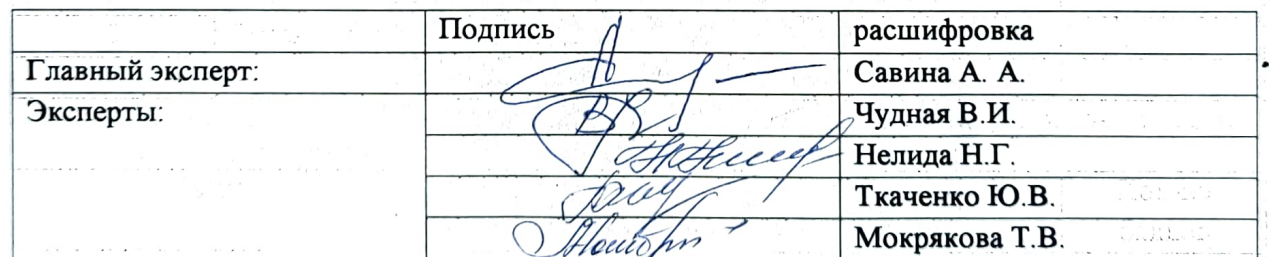 Подпись расшифровка
Главный эксперт: Савина А. А.
Эксперты: Чудная В.И.
Нелида Н.Г.
Ткаченко Ю.В.
Мокрякова Т.В.